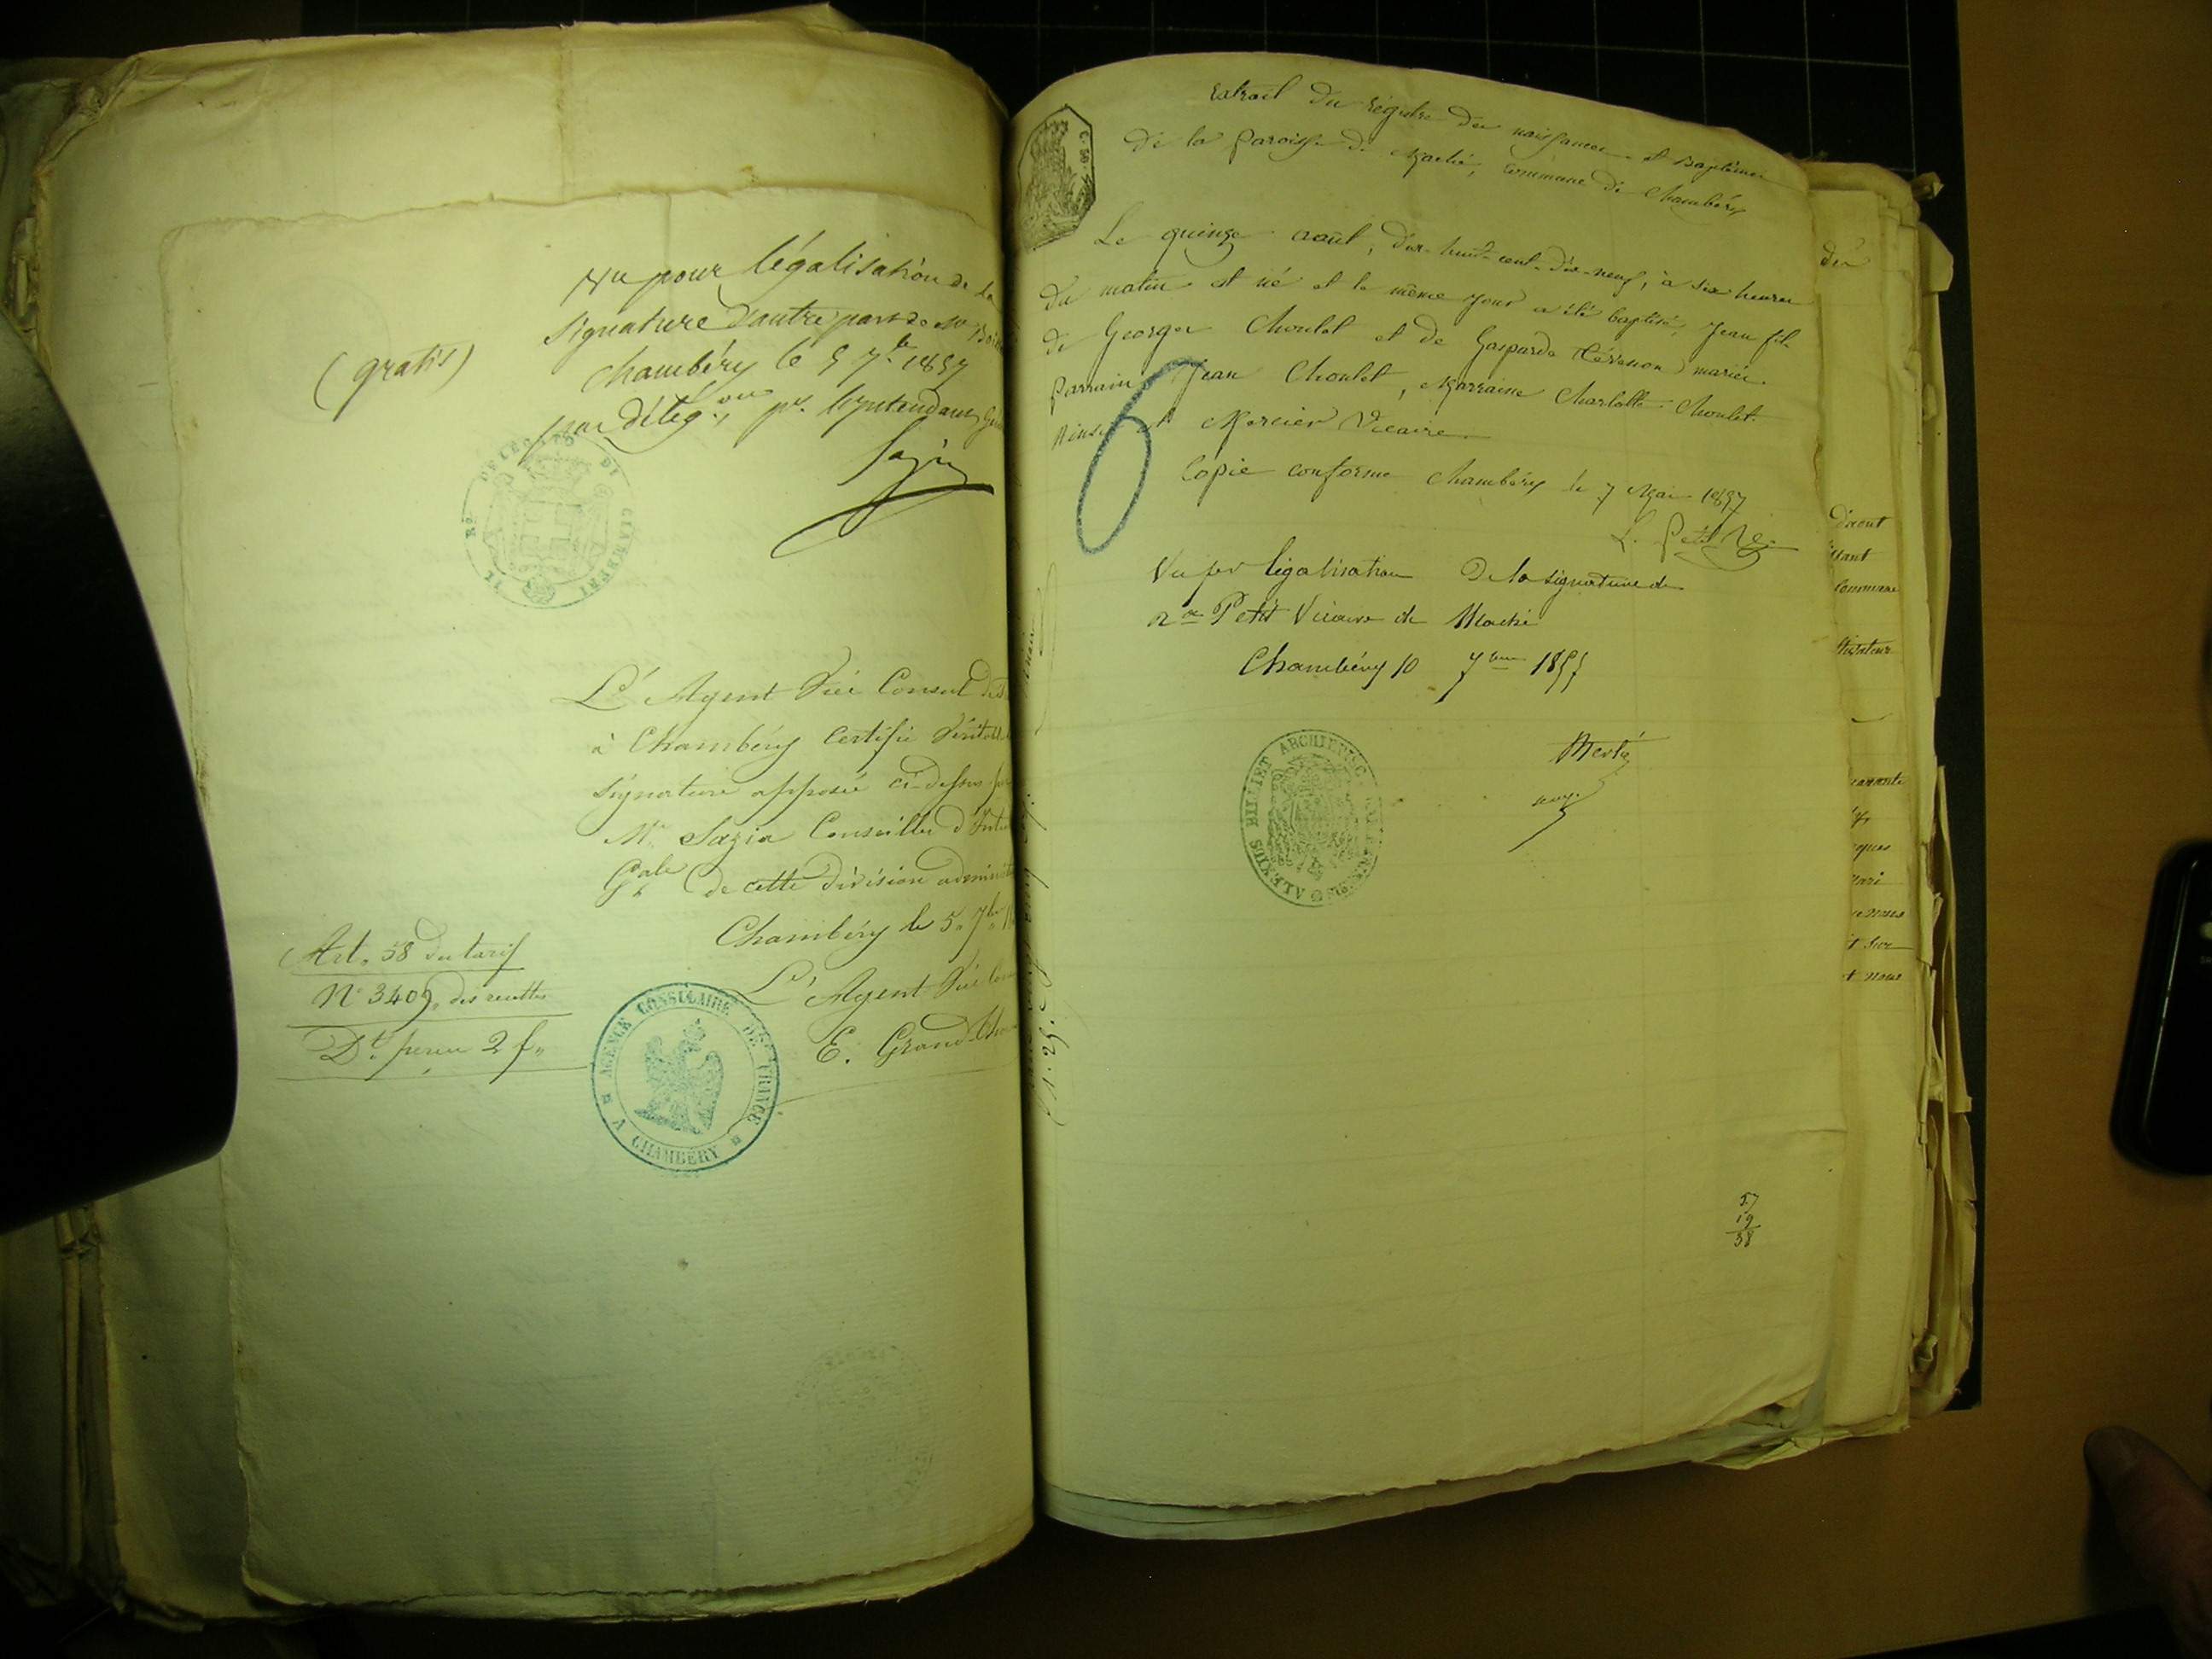 Vu pour légalisation de la
signature d'autre part de
Chambéry le 5 7.bre 1857
(gratis)
par délég.on pr. l'Intendant
Sazia
Rº DELEGATO DI CIAMBERI
L'Agent Vice Consul
à Chambéry Certifie Véritable
signature apposée ci-dessus
Mr. Sazia Conseiller d'
Gale de cette division
Chambéry le 5. 7bre
L'Agent Vice
E. Grand
Art. 58 du tarif
Nº 3409. des recettes
Dt. perçu 2 f.
AGENCE CONSULAIRE DE FRANCE
A CHAMBÉRY
C. 50
Extrait du régistre des naissances et Baptêmes
de la paroisse de Maché, commune de Chambéry
Le quinze août, dix-huit-cent-dix-neuf, à six heures
du matin est né et le même jour a été baptisé, Jean fils
de George Choulet et de Gasparde mariés.
Parrain Jean Choulet, Marraine Charlotte Choulet.
Ainsi est Mercier Vicaire.
Copie conforme Chambéry le 7 Mai 1857
L. Petit Vic.
Vu pr légalisation de la signature de
Petit Vicaire de Maché
Chambéry 10 7bre 1857
ALEXIUS BILLIET ARCHIEP
57
19
38
du
d'aout
commune
t sur
t nous